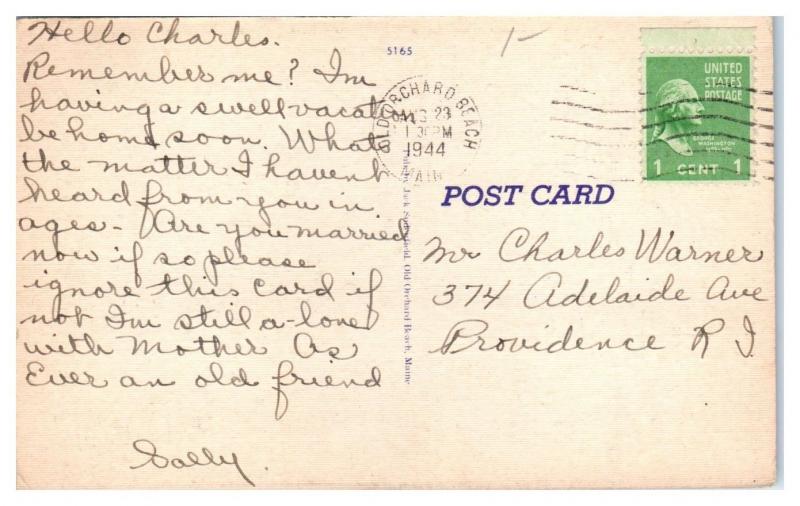 Hello Charles.
Remember me? I'm
having a swell vacation
be home soon. Whats
the matter I havent
heard from you in
ages - Are you married
now if so please
ignore this card if
not I'm still a-lone
with Mother As
Ever an old friend
Sally.
5165
1-
OLD ORCHARD BEACH
AUG 23
1 30PM
1944
MAINE
UNITED
STATES
POSTAGE
GEORGE
WASHINGTON
1 CENT 1
POST CARD
Mr Charles Warner
374 Adelaide Ave
Providence R I
Old Orchard Beach, Maine